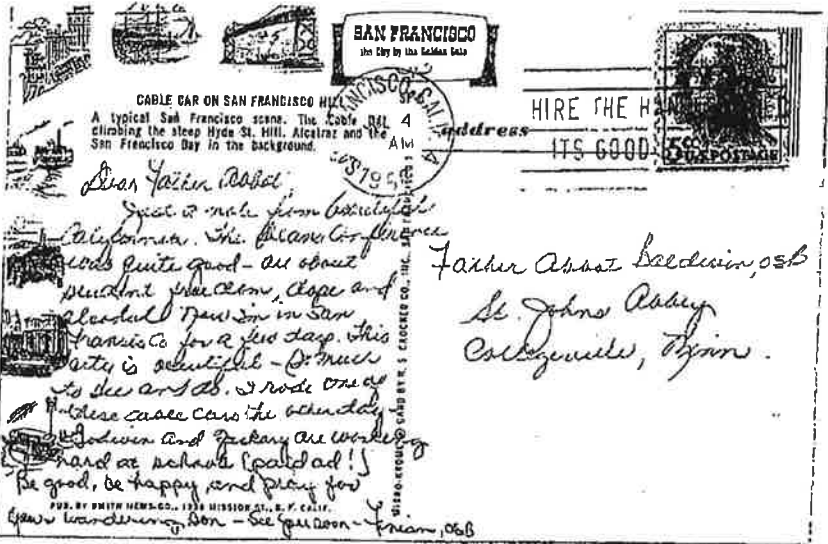 SAN FRANCISCO
the City by the Golden Gate
CABLE CAR ON SAN FRANCISCO HILL
A typical San Francisco scene. The Cable Car
climbing the steep Hyde St. Hill. Alcatraz and the
San Francisco Bay in the background.
address
4
AM
HIRE THE
ITS GOOD
5c U.S. POSTAGE
Dear Father Abbot,
Just a note from beautiful
California. The Deans Conference
was quite good - all about
student freedom, dope and
alcohol. Now I'm in San
Fransisco for a few days. This
city is beautiful - So much
to see and do. I rode one of
these cable cars the other day -
Godwin and Zachary are working
hard at school (paid ad!)
Be good, be happy and pray for
your wandering son - See you soon - Finian, OSB
PUB. BY SMITH NEWS CO., MISSION ST., S. F. CALIF.
CARD BY H. S. CROCKER CO., INC., SAN FRANCISCO
Father Abbot Baldwin, OSB
St. Johns Abbey
Collegeville, Minn.